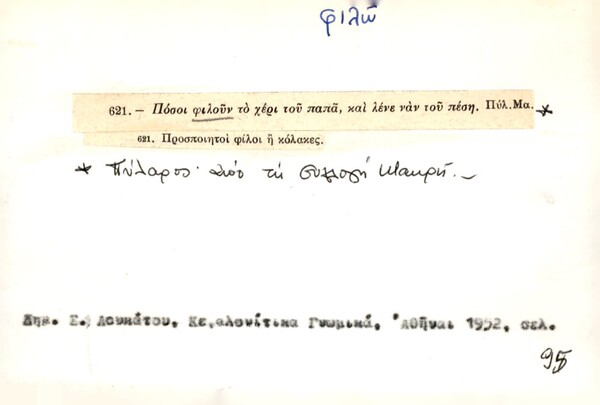 φιλῶ
621. — Πόσοι φιλοῦν τὸ χέρι τοῦ παπᾶ, καὶ λένε νὰν τοῦ πέση. Πύλ.Μα. *
621. Προσποιητοὶ φίλοι ἢ κόλακες.
* Πύλαρος· ἀπὸ τὴ συλλογὴ Μακρῆ. —
Δημ. Σ. Λουκάτου, Κεφαλονίτικα Γνωμικά, Ἀθῆναι 1952, σελ.
95